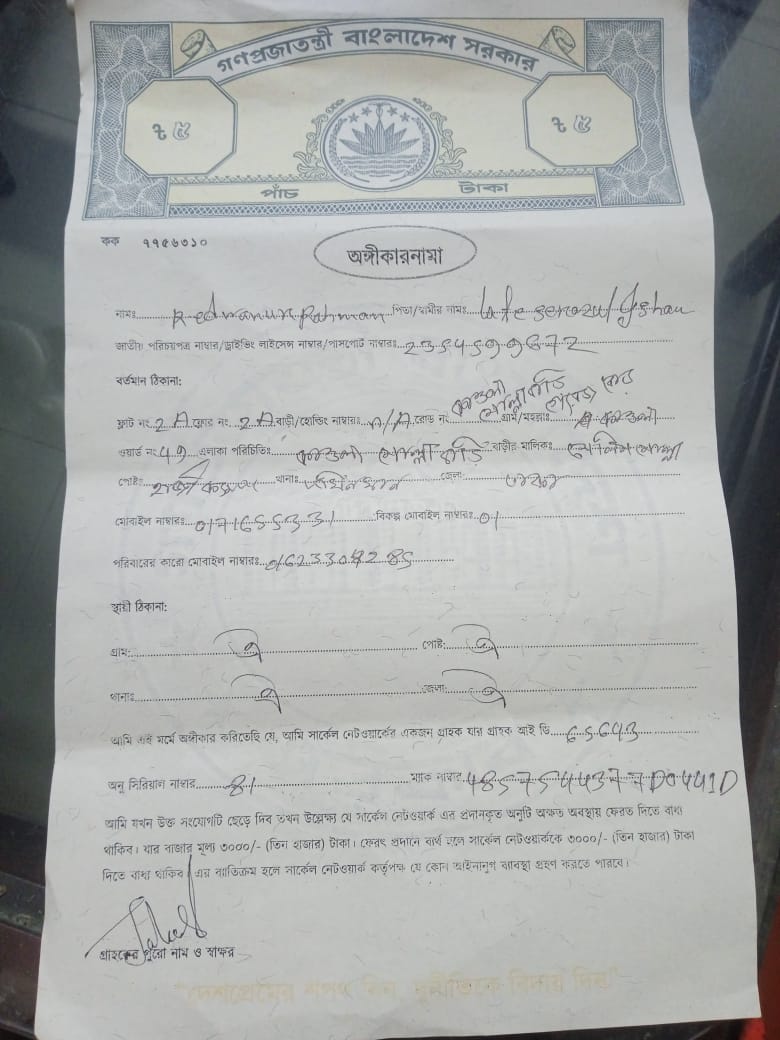 গণপ্রজাতন্ত্রী বাংলাদেশ সরকার
৳ ৫ ৳ ৫
পাঁচ টাকা
কক ৭৭৫৬৩১০
অঙ্গীকারনামা
নামঃ Redwanur Rahman পিতা/স্বামীর নামঃ Late
জাতীয় পরিচয়পত্র নাম্বার/ড্রাইভিং লাইসেন্স নাম্বার/পাসপোর্ট নাম্বারঃ
বর্তমান ঠিকানা:
ফ্লাট নং 2A ফ্লোর নং 2A বাড়ী/হোল্ডিং নাম্বারঃ n/A রোড নং গ্রাম/মহল্লাঃ
ওয়ার্ড নং 49 এলাকা পরিচিতিঃ বাড়ি বাড়ীর মালিকঃ মোল্লা
পোষ্টঃ থানাঃ জেলাঃ ঢাকা
মোবাইল নাম্বারঃ বিকল্প মোবাইল নাম্বারঃ 01
পরিবারের কারো মোবাইল নাম্বারঃ
স্থায়ী ঠিকানা:
গ্রাম: ঐ পোষ্ট: ঐ
থানাঃ ঐ জেলা: ঐ
আমি এই মর্মে অঙ্গীকার করিতেছি যে, আমি সার্কেল নেটওয়ার্কের একজন গ্রাহক যার গ্রাহক আই ডি 65643
অনু সিরিয়াল নাম্বার 81 ম্যাক নাম্বার 4857544377D0441D
আমি যখন উক্ত সংযোগটি ছেড়ে দিব তখন উল্লেক্ষ্য যে সার্কেল নেটওয়ার্ক এর প্রদানকৃত অনুটি অক্ষত অবস্থায় ফেরত দিতে বাধ্য
থাকিব। যার বাজার মূল্য ৩০০০/- (তিন হাজার) টাকা। ফেরৎ প্রদানে ব্যর্থ হলে সার্কেল নেটওয়ার্ককে ৩০০০/- (তিন হাজার) টাকা
দিতে বাধ্য থাকিব। এর ব্যতিক্রম হলে সার্কেল নেটওয়ার্ক কর্তৃপক্ষ যে কোন আইনানুগ ব্যবস্থা গ্রহণ করতে পারবে।
গ্রাহকের পুরো নাম ও স্বাক্ষর
"দেশপ্রেমের শপথ নিন, দুর্নীতিকে বিদায় দিন"